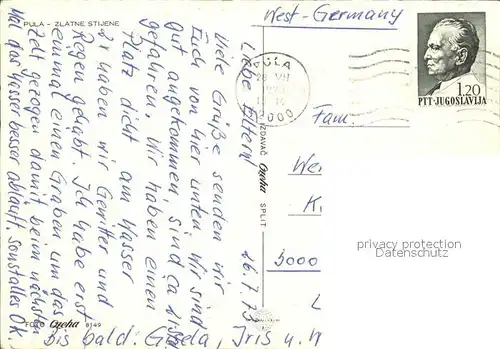 PULA - ZLATNE STIJENE
26.7.73
Liebe Eltern!
Viele Grüße senden wir
Euch von hier unten. Wir sind
gut angekommen, sind ca
gefahren. Wir haben einen
Platz dicht am Wasser
2x haben wir Gewitter und
Regen gehabt. Ich habe erst
einmal einen Graben um das
Zelt gezogen damit beim nächsten
Mal das Wasser besser abläuft. sonst alles Ok.
bis bald: Gisela, Iris u.
FOTO 8149
IZDAVAČ SPLIT
West-Germany
PULA
2000
1.20
PTT-JUGOSLAVIJA
Fam.
We
K
3000
L
privacy protection
Datenschutz